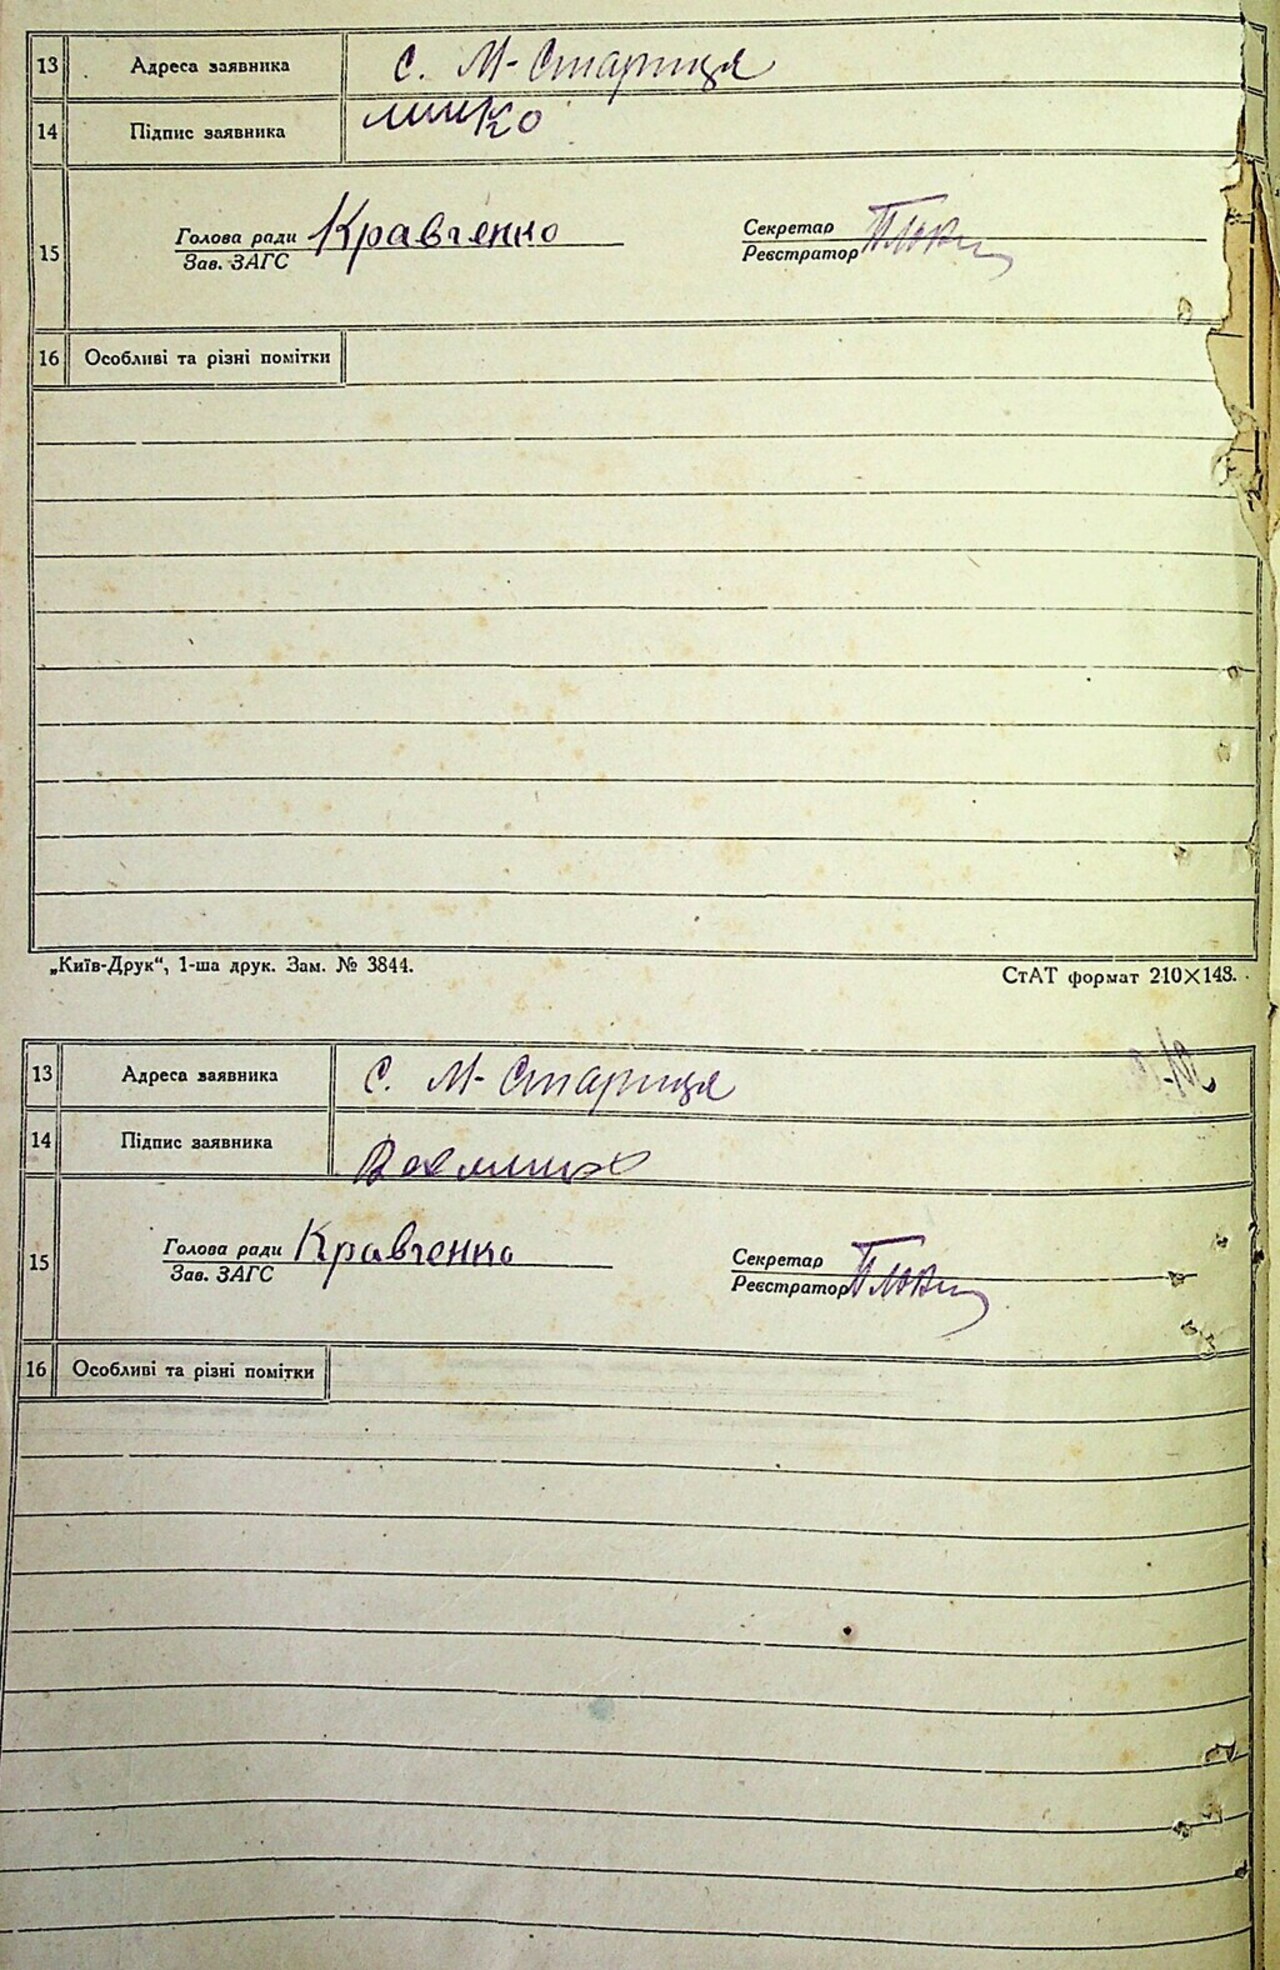 13 Адреса заявника с. М-Стариця
14 Підпис заявника минко
15 Голова ради Кравченко Секретар
Зав. ЗАГС Реєстратор
16 Особливі та різні помітки
„Київ-Друк“, 1-ша друк. Зам. № 3844. СтАТ формат 210×148.
13 Адреса заявника с. М-Стариця
14 Підпис заявника
15 Голова ради Кравченко Секретар
Зав. ЗАГС Реєстратор
16 Особливі та різні помітки